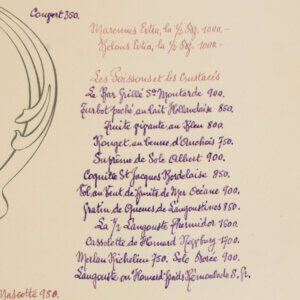 Couvert 350.
Marennes Extra, la ½ Dz. 1000.-
Belons Extra, la ½ Dz. 1000.-
Les Poissons et les Crustacés
Le Bar Grillé Sce Moutarde 900.
Turbot poché au lait Hollandaise 850.
Truite gigante au Bleu 800.
Rouget au beurre d'Anchois 750.
Suprême de Sole Albert 900.
Coquille St Jacques Bordelaise 850.
Vol au Vent de fruits de Mer Océane 900.
Gratin de Queues de Langoustines 850.
La ½ Langouste Thermidor 1600.
Cassolette de Homard 900.
Merlan Richelieu 750. Sole Dorée 900.
Langouste ou Homard froids Remoulade S. Gr.
Mascotte 950.